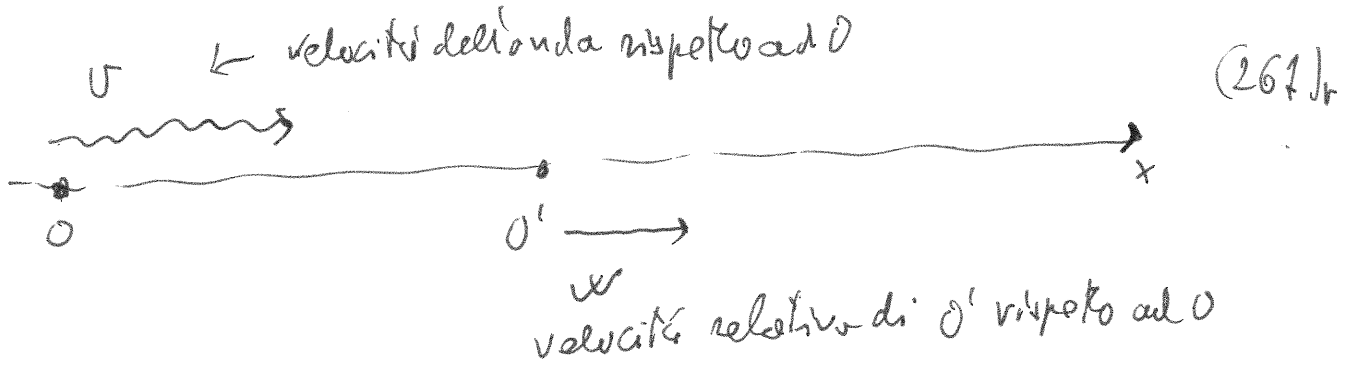 v ← velocità dell'onda rispetto ad O
(267)r
O O' x
w
velocità relativa di O' rispetto ad O